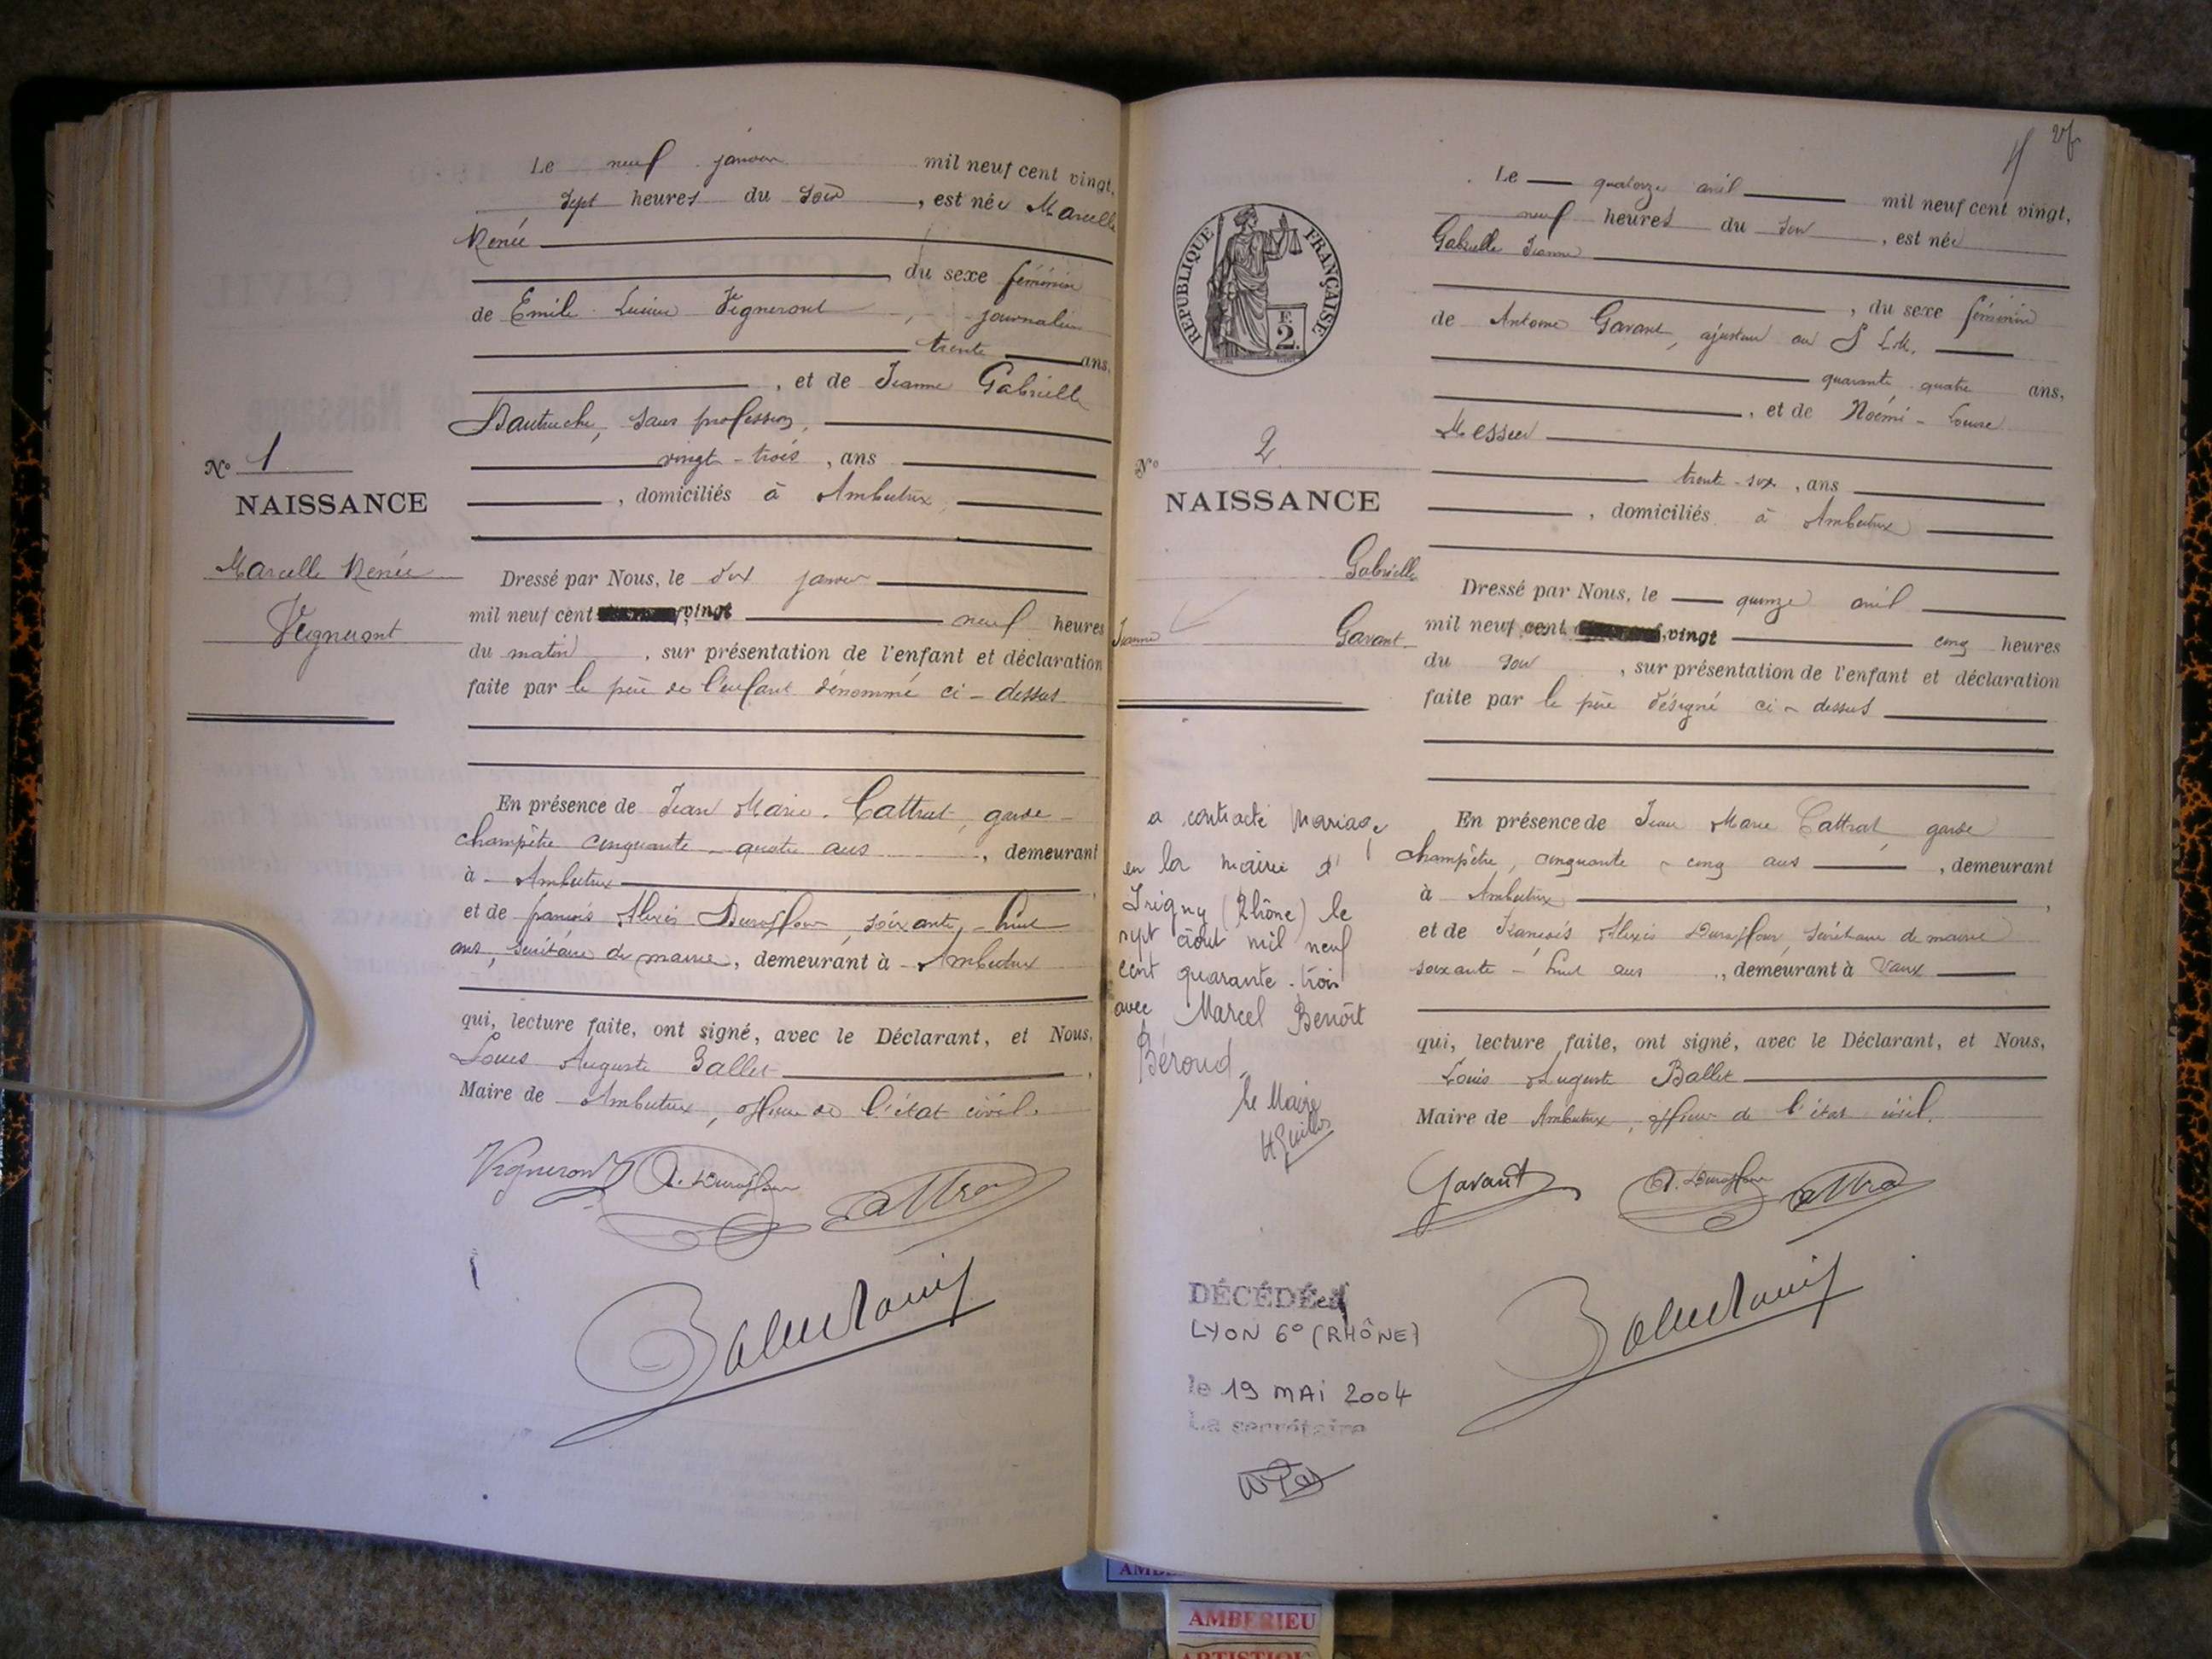 Le neuf janvier mil neuf cent vingt,
sept heures du soir, est née Marcelle
Renée
, du sexe féminin
de Emile Lucien Vigneront, journalier
trente ans,
, et de Jeanne Gabrielle
Dautruche, sans profession,
vingt-trois, ans
, domiciliés à Ambutrix,
Nº 1
NAISSANCE
Marcelle Renée
Vigneront
Dressé par Nous, le dix janvier
mil neuf cent vingt neuf heures
du matin, sur présentation de l'enfant et déclaration
faite par le père de l'enfant dénommé ci-dessus
En présence de Jean Marie Cattrat, garde-
champêtre cinquante-quatre ans, demeurant
à Ambutrix,
et de François Alexis Duraffour, soixante-huit
ans, secrétaire de mairie, demeurant à Ambutrix
qui, lecture faite, ont signé, avec le Déclarant, et Nous,
Louis Auguste Ballet,
Maire de Ambutrix, officier de l'état civil.
Vigneront A. Duraffour
4
Le quatorze avril mil neuf cent vingt,
neuf heures du soir, est née
Gabrielle Jeanne
, du sexe féminin
de Antoine Gavant, ajusteur au P.L.M.
quarante-quatre ans,
, et de Noémi-Louise
Messier
trente-six, ans
, domiciliés à Ambutrix
RÉPUBLIQUE FRANÇAISE
F.
2.
Nº 2
NAISSANCE
Gabrielle
Jeanne Gavant
Dressé par Nous, le quinze avril
mil neuf cent vingt cinq heures
du soir, sur présentation de l'enfant et déclaration
faite par le père désigné ci-dessus
En présence de Jean Marie Cattrat, garde
champêtre, cinquante-cinq ans, demeurant
à Ambutrix,
et de François Alexis Duraffour, secrétaire de mairie
soixante-huit ans, demeurant à Vaux
qui, lecture faite, ont signé, avec le Déclarant, et Nous,
Louis Auguste Ballet
Maire de Ambutrix, officier de l'état civil.
Gavant A. Duraffour
a contracté mariage
en la mairie d'
Irigny (Rhône) le
sept août mil neuf
cent quarante-trois
avec Marcel Benoît
Béroud.
Le Maire
DÉCÉDÉe à
LYON 6º (RHÔNE)
le 19 MAI 2004
La secrétaire
AMBERIEU